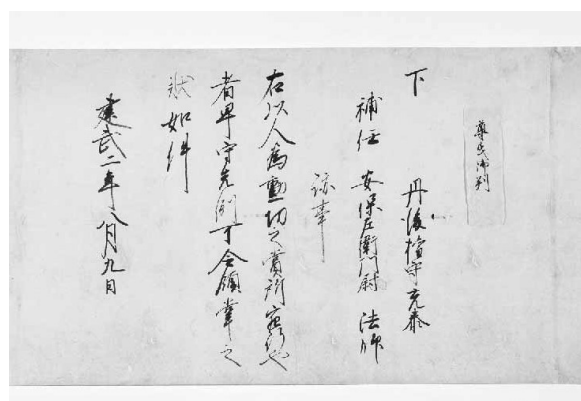 尊氏御判
下 丹後権守光泰
補任 安保左衛門尉 法師
跡事
右以人為勲功之賞所宛行也
者早守先例可令領掌之
状如件
建武二年八月九日